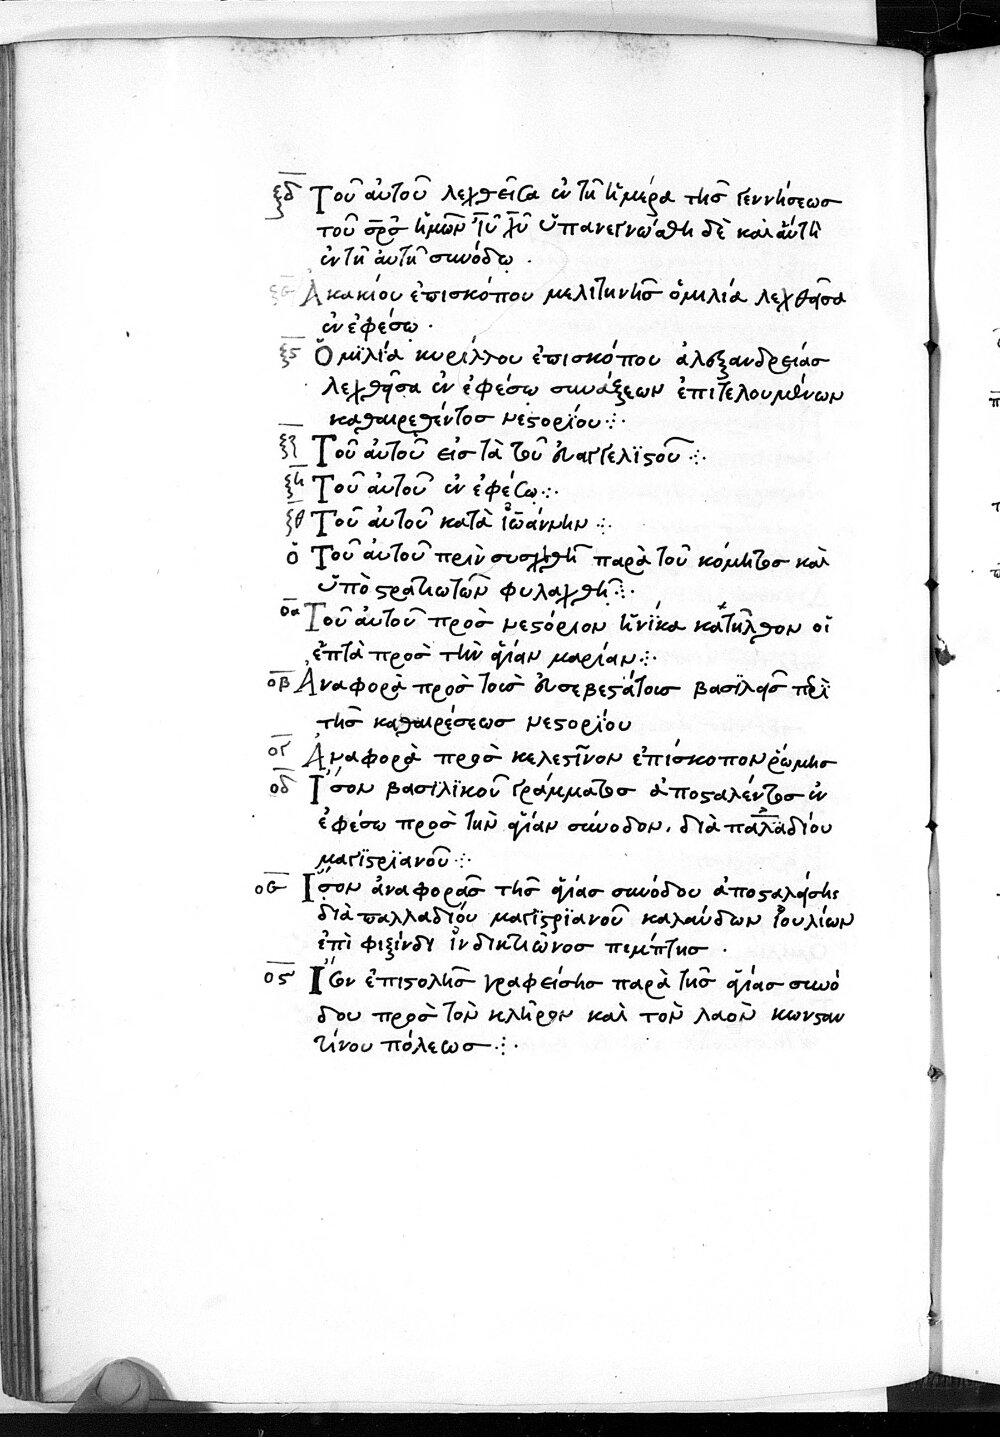 ξδ Τοῦ αὐτοῦ λεχθεῖσα ἐν τῆ ἡμέρα τῆς γεννήσεως
τοῦ σρσ ἡμῶν ἰυ χυ ὑπανεγνώσθη δὲ καὶ αὐτὴ
ἐν τῆ αὐτῆ συνόδω .
ξε Ἀκακίου ἐπισκόπου μελιτηνῆς ὁμιλία λεχθῆσα
ἐν ἐφέσω .
ξς Ὁμϊλία κυρίλλου ἐπισκόπου ἀλεξανδρείας
λεχθῆσα ἐν ἐφέσω συνάξεων ἐπιτελουμένων
καθαιρεθέντος νεστορίου
ξζ Τοῦ αὐτοῦ εἰς τὰ τοῦ εὐαγγελϊστοῦ
ξη Τοῦ αὐτοῦ ἐν ἐφέσω
ξθ Τοῦ αὐτοῦ κατὰ ἰωάννην
ο Τοῦ αὐτοῦ πρὶν συσχεθῆ παρὰ τοῦ κόμητος καὶ
ὑπὸ στρατιωτῶν φυλαχθῆ
οα Τοῦ αὐτοῦ πρὸς νεστόριον ἡνίκα κατῆλθον οἱ
ἑπτὰ πρὸς τὴν ἁγίαν μαρίαν
οβ Ἀναφορὰ πρὸς τοὺς εὐσεβεστάτους βασιλεῖς περὶ
τῆς καθαιρέσεως νεστορίου
ογ Ἀναφορὰ πρὸς κελεστῖνον ἐπίσκοπον ῥώμης
οδ Ἴσον βασϊλϊκοῦ γράμματος ἀποσταλέντος ἐν
ἐφέσω πρὸς τὴν ἁγίαν σύνοδον. διὰ παλαδίου
μαγϊστρϊανοῦ
οε Ἴσον ἀναφορᾶς τῆς ἁγίας συνόδου ἀποσταλείσης
διὰ παλλαδίου μαγϊστρϊανοῦ καλανδων ἰουλίων
ἐπὶ φιξίνδι ἰνδικτιῶνος πεμπτης .
ος Ἴσον ἐπιστολῆς γραφείσης παρὰ τῆς ἁγίας συνό
δου πρὸς τὸν κλῆρον καὶ τὸν λαὸν κωνσταν
τίνου πόλεως